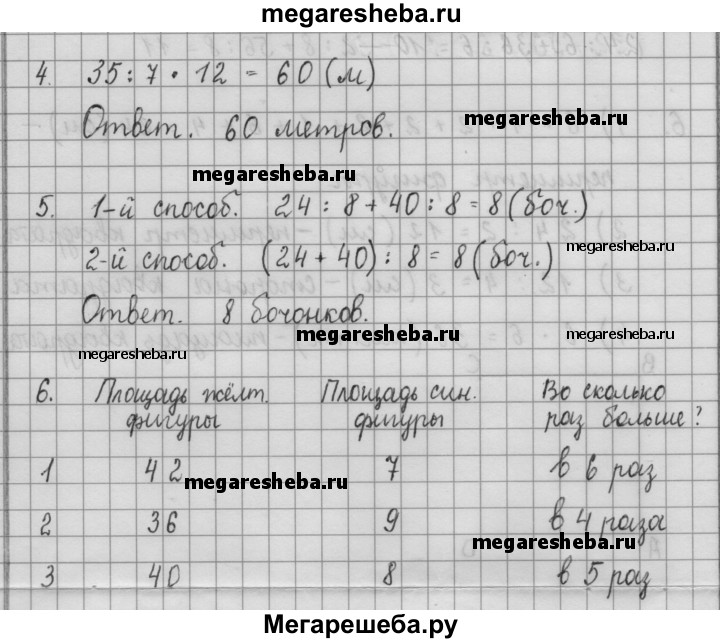 megaresheba.ru
4. 35 : 7 · 12 = 60 (м)
Ответ. 60 метров.
megaresheba.ru
megaresheba.ru
5. 1-й способ. 24 : 8 + 40 : 8 = 8 (боч.)
megaresheba.ru
2-й способ. (24 + 40) : 8 = 8 (боч.)
Ответ. 8 бочонков.
megaresheba.ru
megaresheba.ru
6. Площадь жёлт. фигуры Площадь син. фигуры Во сколько раз больше?
1 42 7 в 6 раз
megaresheba.ru
2 36 9 в 4 раза
megaresheba.ru
3 40 8 в 5 раз
Мегарешеба.ру